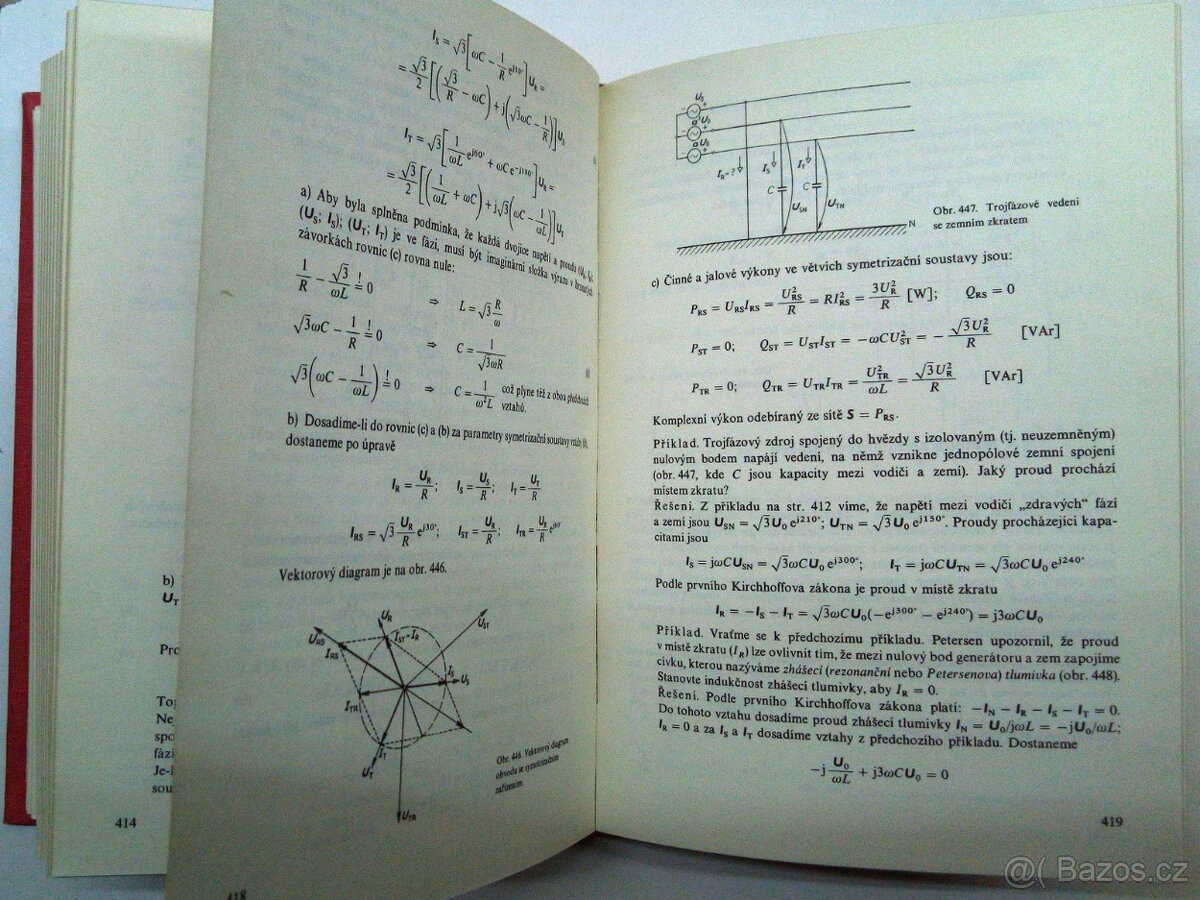 b)
U_T
Pro
Top
Nej
spo
fázi
Je-l
sou
414
I_S = √3[ωC − 1/R e^{j30°}]U_R =
= √3/2 [(√3/R − ωC) + j(√3ωC − 1/R)]U_S
I_T = √3[1/ωL e^{j60°} + ωC e^{−j180°}]U_R =
= √3/2 [(1/ωL + ωC) + j√3(ωC − 1/ωL)]U_T
a) Aby byla splněna podmínka, že každá dvojice napětí a proudu (U_R; I_R);
(U_S; I_S); (U_T; I_T) je ve fázi, musí být imaginární složka výrazu v hranatých
závorkách rovnic (c) rovna nule:
1/R − √3/ωL =! 0 ⇒ L = √3 R/ω
√3ωC − 1/R =! 0 ⇒ C = 1/√3ωR
√3(ωC − 1/ωL) =! 0 ⇒ C = 1/ω²L což plyne též z obou předchozích
vztahů.
b) Dosadíme-li do rovnic (c) a (b) za parametry symetrizační soustavy vztahy
dostaneme po úpravě
I_R = U_R/R; I_S = U_S/R; I_T = U_T/R
I_RS = √3 U_R/R e^{j30°}; I_ST = U_R/R; I_TR = U_R/R
Vektorový diagram je na obr. 446.
U_RS
I_RS
U_R
I_ST = I_R
U_ST
I_S
U_S
I_TR
I_T
U_T
U_TR
Obr. 446. Vektorový diagram
obvodu se symetrizačním
zařízením
418
U_0
a²U_0
aU_0
I_R = ?
I_S
I_T
C
C
U_SN
U_TN
N
Obr. 447. Trojfázové vedení
se zemním zkratem
c) Činné a jalové výkony ve větvích symetrizační soustavy jsou:
P_RS = U_RS I_RS = U²_RS/R = RI²_RS = 3U²_R/R [W]; Q_RS = 0
P_ST = 0; Q_ST = U_ST I_ST = −ωCU²_ST = − √3U²_R/R [VAr]
P_TR = 0; Q_TR = U_TR I_TR = U²_TR/ωL = √3U²_R/R [VAr]
Komplexní výkon odebíraný ze sítě S = P_RS.
Příklad. Trojfázový zdroj spojený do hvězdy s izolovaným (tj. neuzemněným)
nulovým bodem napájí vedení, na němž vznikne jednopólové zemní spojení
(obr. 447, kde C jsou kapacity mezi vodiči a zemí). Jaký proud prochází
místem zkratu?
Řešení. Z příkladu na str. 412 víme, že napětí mezi vodiči „zdravých" fází
a zemí jsou U_SN = √3U_0 e^{j210°}; U_TN = √3U_0 e^{j150°}. Proudy procházející kapa-
citami jsou
I_S = jωCU_SN = √3ωCU_0 e^{j300°}; I_T = jωCU_TN = √3ωCU_0 e^{j240°}
Podle prvního Kirchhoffova zákona je proud v místě zkratu
I_R = −I_S − I_T = √3ωCU_0(−e^{j300°} − e^{j240°}) = j3ωCU_0
Příklad. Vraťme se k předchozímu příkladu. Petersen upozornil, že proud
v místě zkratu (I_R) lze ovlivnit tím, že mezi nulový bod generátoru a zem zapojíme
cívku, kterou nazýváme zhášecí (rezonanční nebo Petersenova) tlumivka (obr. 448).
Stanovte indukčnost zhášecí tlumivky, aby I_R = 0.
Řešení. Podle prvního Kirchhoffova zákona platí: −I_N − I_R − I_S − I_T = 0.
Do tohoto vztahu dosadíme proud zhášecí tlumivky I_N = U_0/jωL = −jU_0/ωL;
I_R = 0 a za I_S a I_T dosadíme vztahy z předchozího příkladu. Dostaneme
−j U_0/ωL + j3ωCU_0 = 0
419
@( Bazos.cz